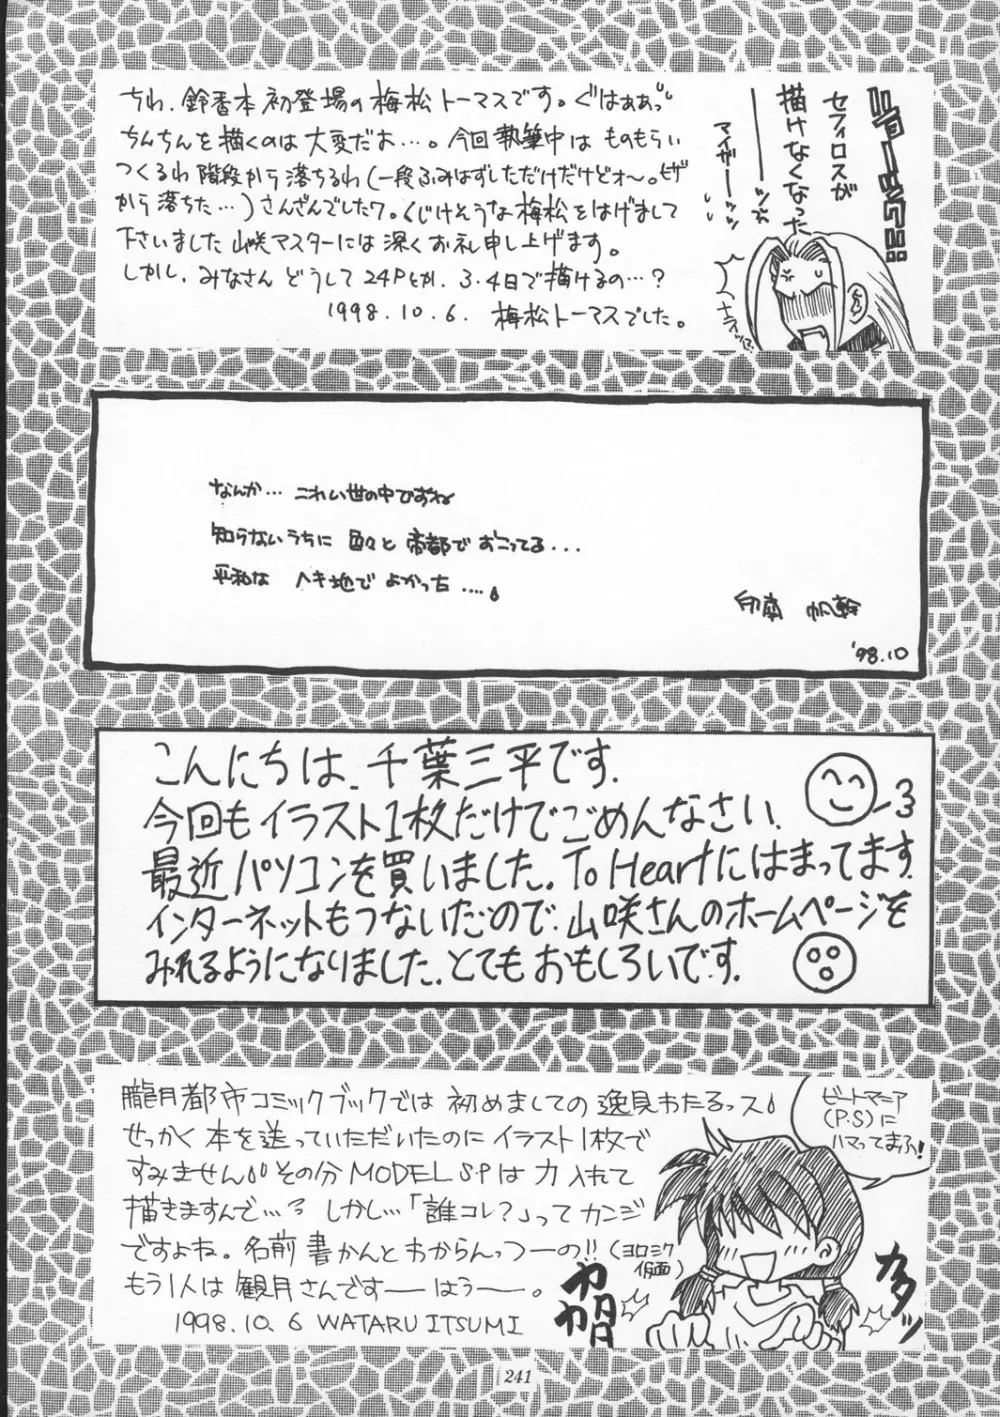 ちわ、鈴香本初登場の梅松トーマスです。ぐはぁぁっ
ちんちんを描くのは大変だお…。今回執筆中はものもらい
つくるわ階段から落ちるわ(一段ふみはずしただけだけどォ〜。ヒザ
から落ちた…)さんざんでしたワ。くじけそうな梅松をはげまして
下さいました山咲マスターには深くお礼申し上げます。
しかし、みなさんどうして24Pとか、3・4日で描けるの…?
1998.10.6. 梅松トーマスでした。
セフィロスが
描けなくなった
マイガーーッッ
なんか… これい世の中ですね
知らないうちに 色々と 帝都で おこってる...
平和な ヘキ地で よかった ....
'98.10
こんにちは、千葉三平です。
今回もイラスト1枚だけでごめんなさい。
最近パソコンを買いました。To Heartにはまってます。
インターネットもつないだので、山咲さんのホームページを
みれるようになりました。とてもおもしろいです。
朧月都市コミックブックでは初めましての逸見わたるっス!
せっかく本を送っていただいたのにイラスト1枚で
すみません!! その分MODEL S.Pは力入れて
描きますんで…? しかし…「誰コレ?」ってカンジ
ですよね。名前書かんとわからんっつーの!!(ヨロミク仮面)
もう1人は観月さんですーーはぅーー。
1998.10.6 WATARU ITSUMI
ビートマニア
(P.S)に
ハマってまふ!
カタッ
241